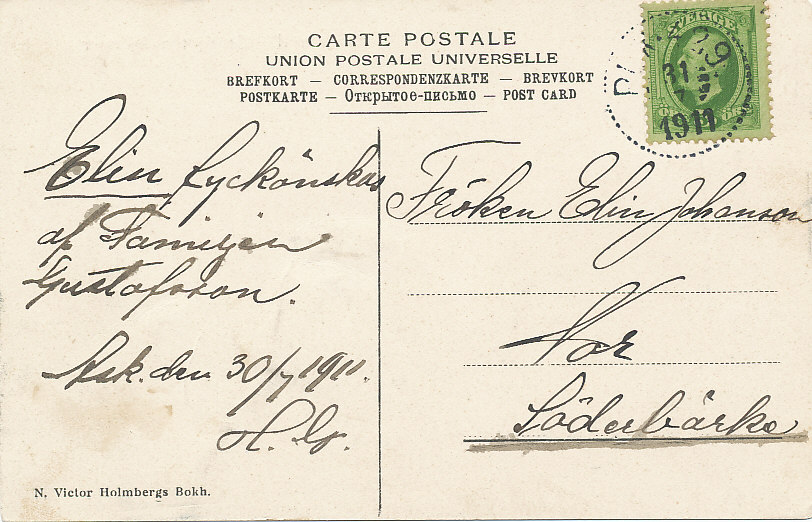 CARTE POSTALE
UNION POSTALE UNIVERSELLE
BREFKORT — CORRESPONDENZKARTE — BREVKORT
POSTKARTE — Открытое-письмо — POST CARD
SVERIGE
31
7
1911
Elin lyckönskas
af Familjen
Gustafsson.
Ask. den 30/7 1911.
H. G.
Fröken Elin Johanson
Nor
Söderbärke
N. Victor Holmbergs Bokh.